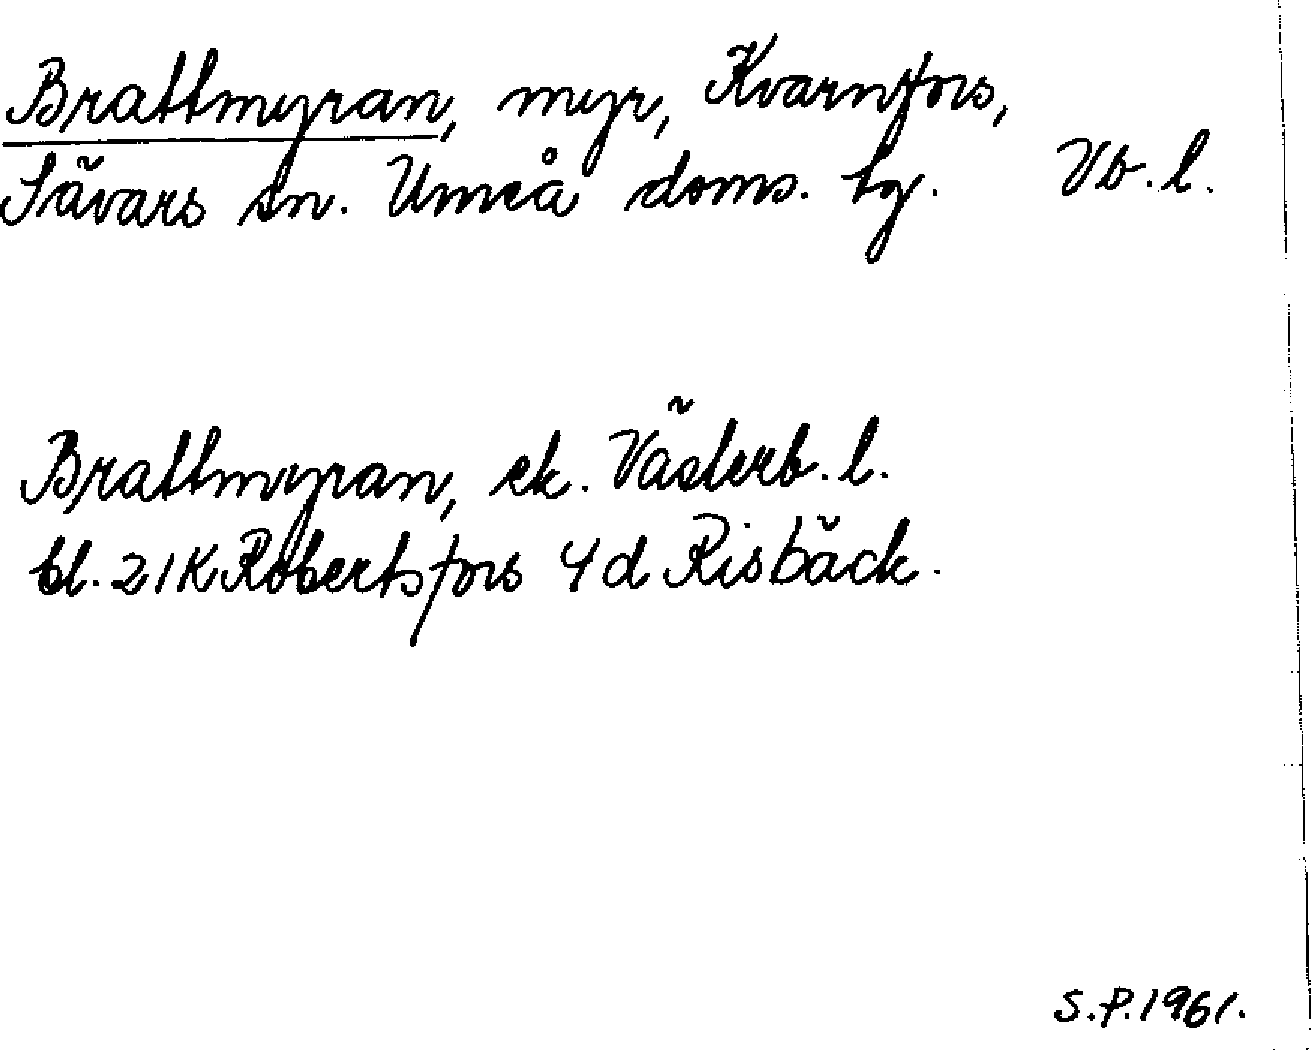 Brattmyran, myr, Kvarnfors,
Sävars sn. Umeå doms. tg. Vb. l.
Brattmyran, ek. Västerb. l.
bl. 21K Robertsfors 4d Risbäck.
S.P. 1961.